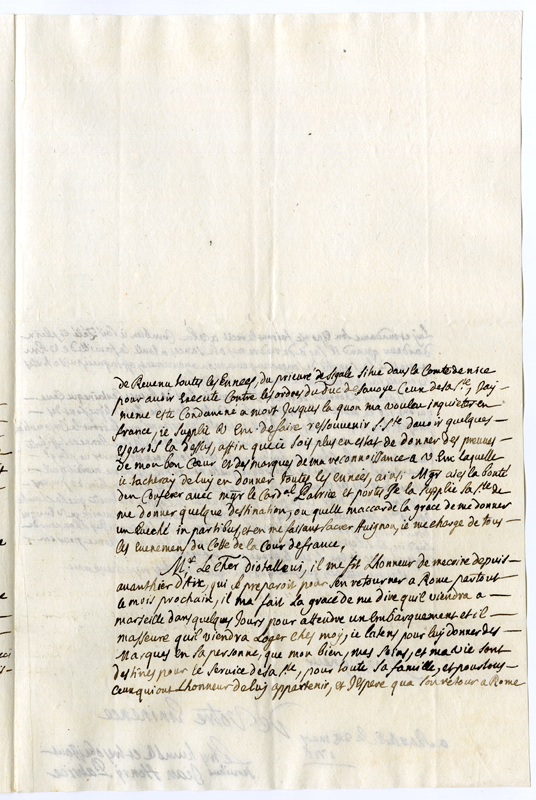 de Revenu toutes les Ennees, du prieuré de Sigale situe dans le Comté de nice
pour avoir Execute Contre les ordres du Duc de savoye Ceux de sa Ste, J'ay
meme esté Condamné a mort Jusques la quon ma vouleu inquieter en
france, ie supplie V. Em. de faire ressouvenir S. Ste davoir quelques
esgards la dessus, affin que ie sois plus en estat de donner des preuves
de mon bon Coeur et des marques de ma reconnoissance a V. Em. laquelle
ie tacheray de luy en donner toutes les ennées, ainsi Mgr ayes la bonté
den Conferer avec mgr le Card.al fabrice et portes Je la supplie sa Ste de
me donner quelque destination, ou quelle maccorde la grace de me donner
un Eveché in partibus, et en me faisant sacrer Avignon, ie me charge de tous
les Evenemens du Costé de la Cour de france,
Mr. Le Cher diotallevi, il me fit Lhonneur de mecrire depuis
avanthier d'Aix, qui se preparoit pour sen retourner a Rome par tout
le mois prochain, il ma fait la grace de me dire quil viendra a
marseille dans quelques Jours pour attendre un Embarquement et il
masseure quil viendra Loger ches moy, ie latens pour luy donner des
Marques en sa personne, que mon bien, mes soins, et ma vie sont
destines pour le service de sa Ste, pour toute sa famille, et pour tous
ceux qui ont Lhonneur de luy appartenir, et J'espere qua son retour a Rome